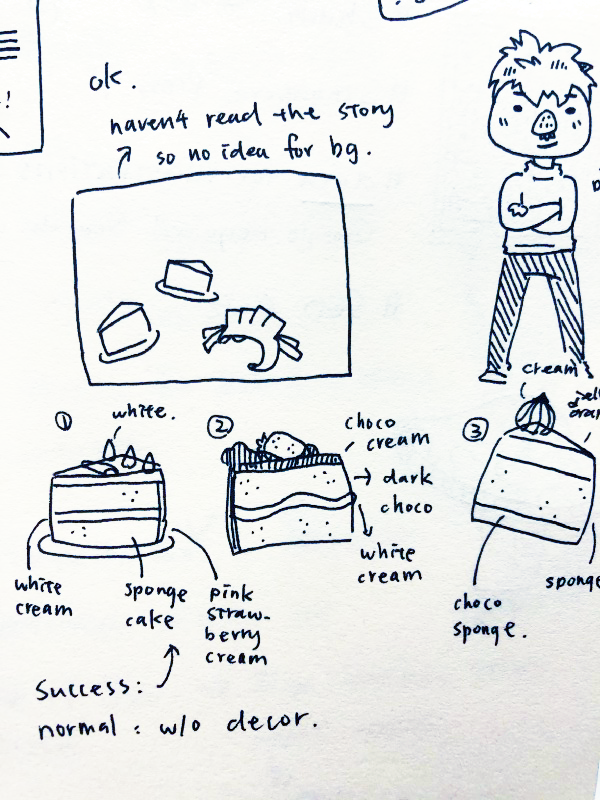 !
ok.
haven4 read the story
so no idea for bg.
① white.
white
cream
sponge
cake
pink
straw-
berry
cream
②
choco
cream
dark
choco
white
cream
③
cream
choco
sponge.
sponge
Success:
normal : w/o decor.